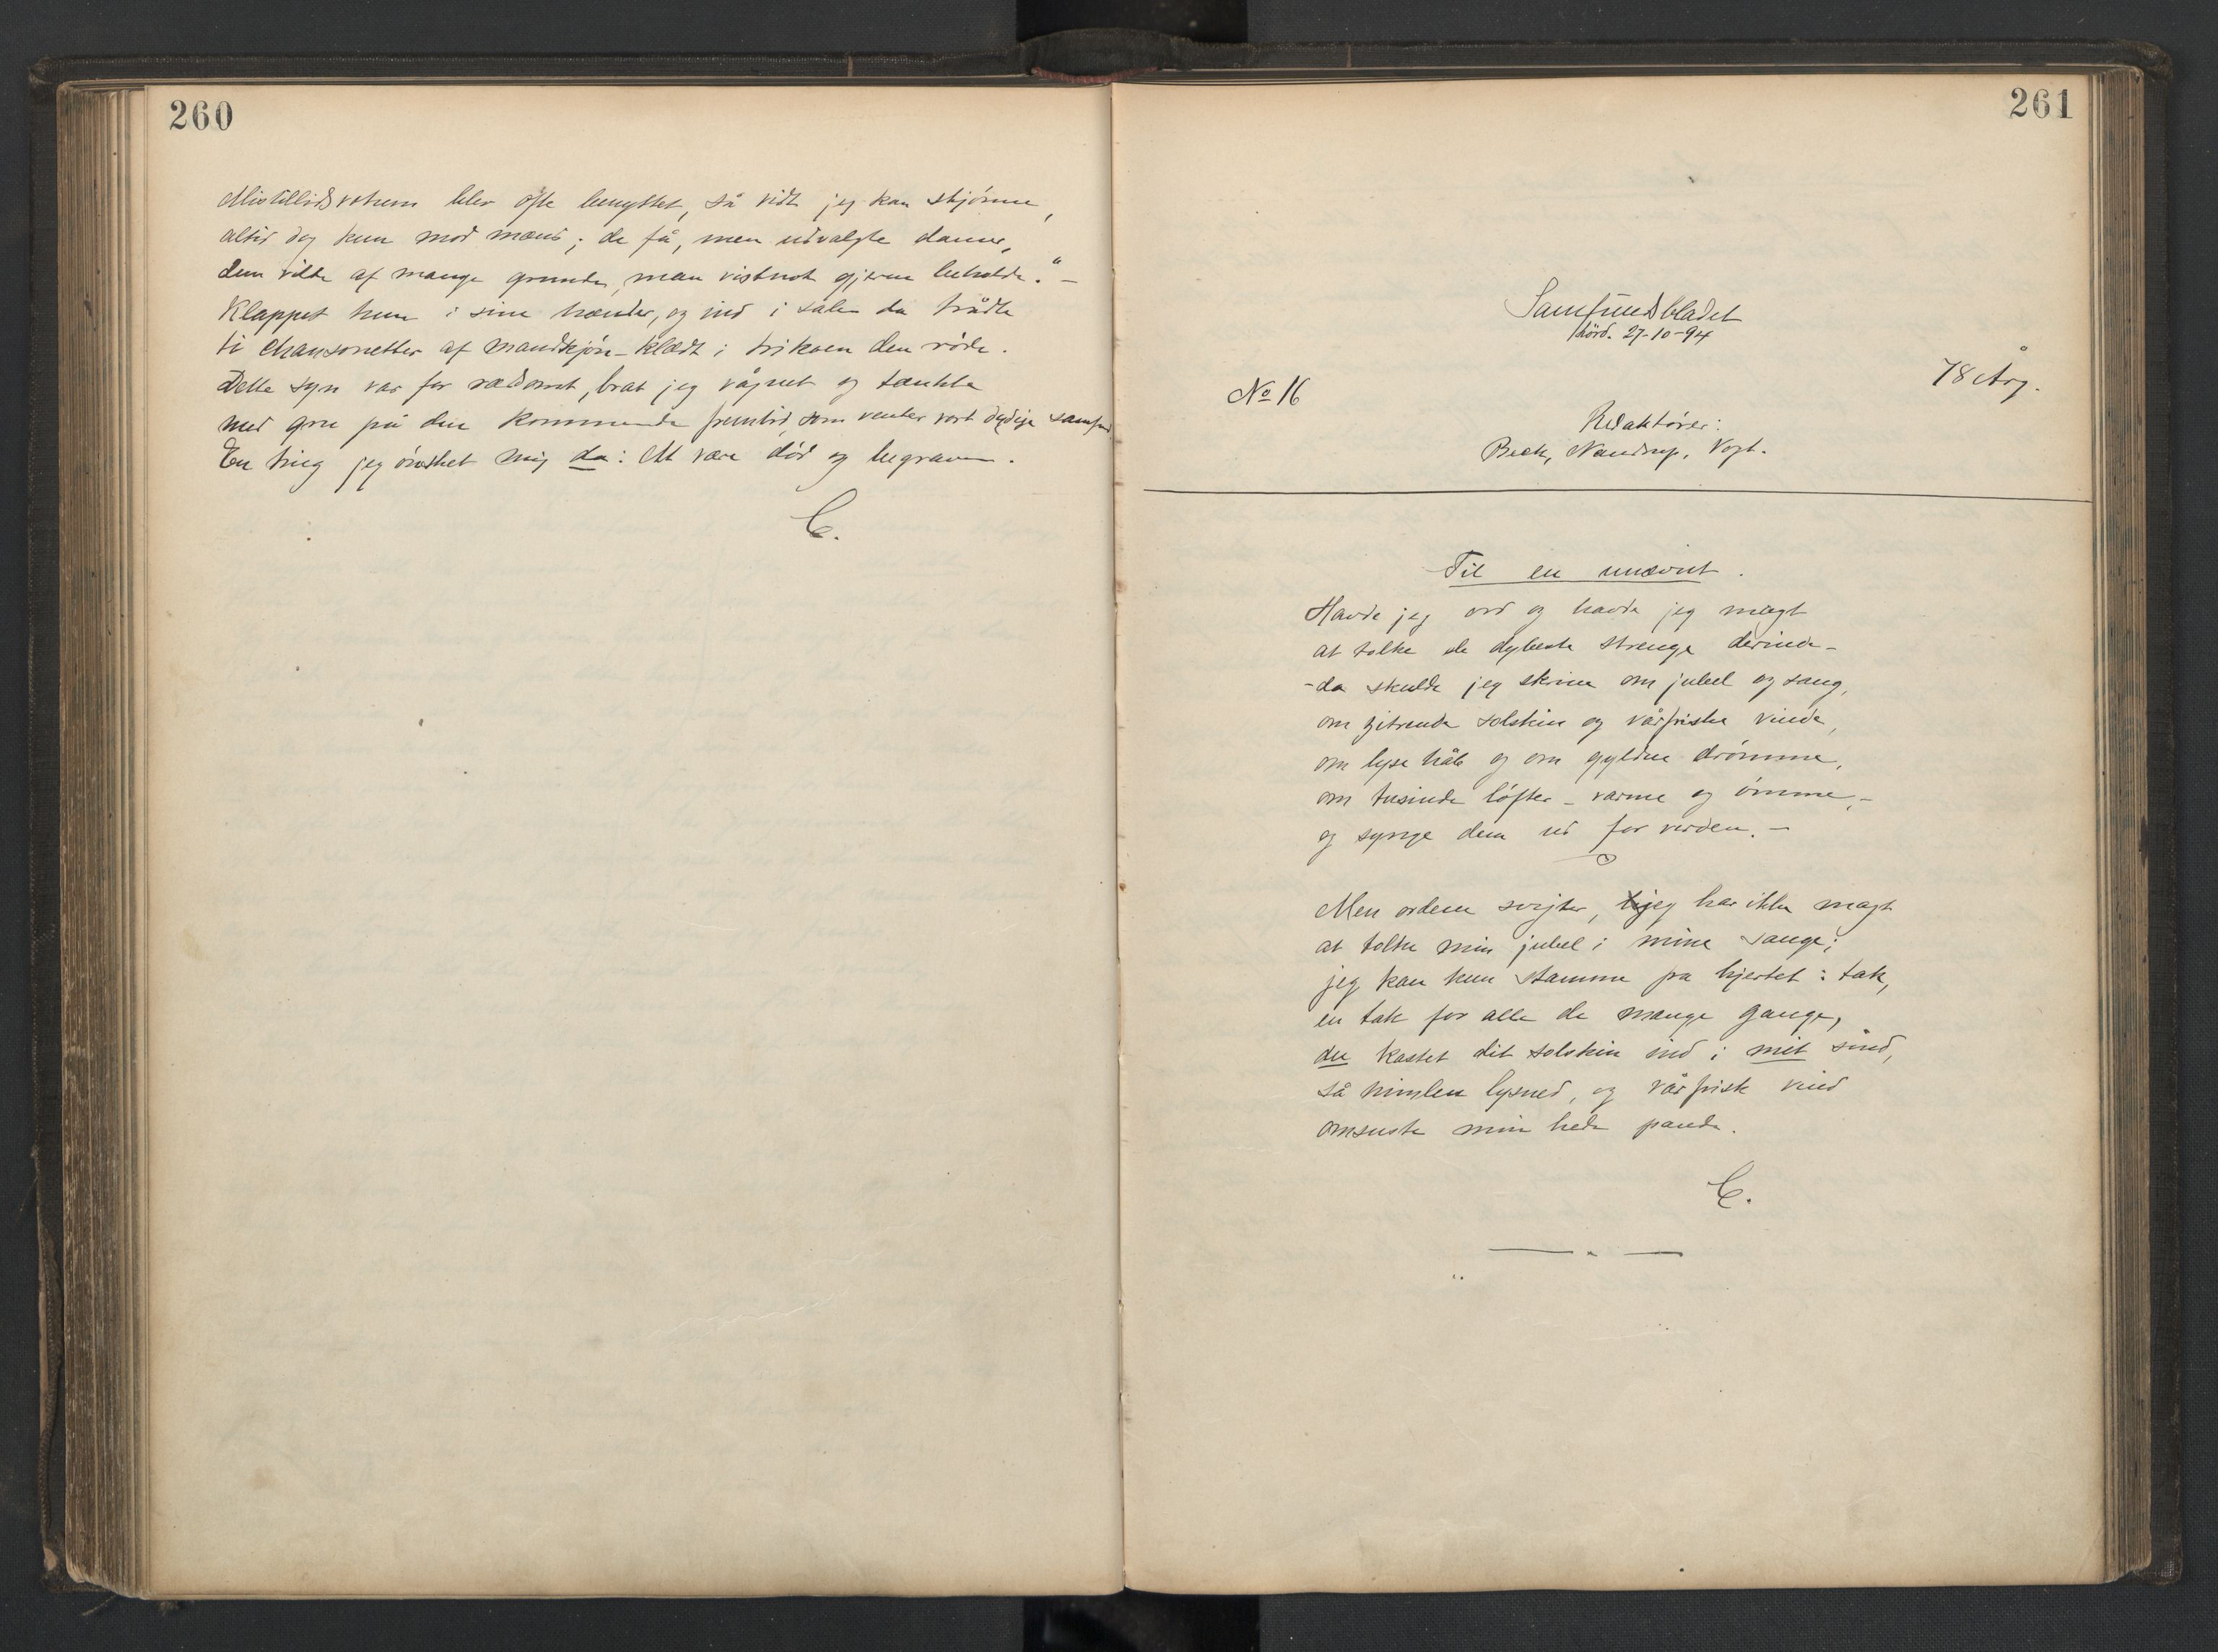 260
Mistillidsvotum blev ofte benyttet, så vidt jeg kan skjønne,
altid dog kun mod mænd; de få, men udvalgte damer,
dem vilde af mange grunde, man vistnok gjerne beholde." –
Klappet hun i sine hænder, og ind i salen da trådte
ti chansonetter af mandkjøn – klædt i trikoen den røde.
Dette syn var for rædsomt, brat jeg vågnet og tænkte
med gru på den kommende fremtid, som venter vort dydige samfund
En ting jeg ønsket mig da: At være død og begraven.
C.
261
Samfundsbladet
lørd. 27-10-94
No 16
78 Årg.
Redaktører:
Beck, Nandrup, Vogt.
Til en unævnt.
Havde jeg ord og havde jeg magt
at tolke de dybeste strenge derinde –
– da skulde jeg skrive om jubel og sang,
om gitrende solskin og vårfriske vinde,
om lyse håb og om gyldne drømme,
om tusinde løfter – varme og ømme, –
og synge dem ud for verden. –
Men ordene svigter, jeg har ikke magt
at tolke min jubel i mine sange;
jeg kan kun stamme fra hjertet: tak,
en tak for alle de mange gange,
du kastet dit solskin ind i mit sind,
så himlen lysned, og vårfrisk vind
omsuste min hede pande.
C.